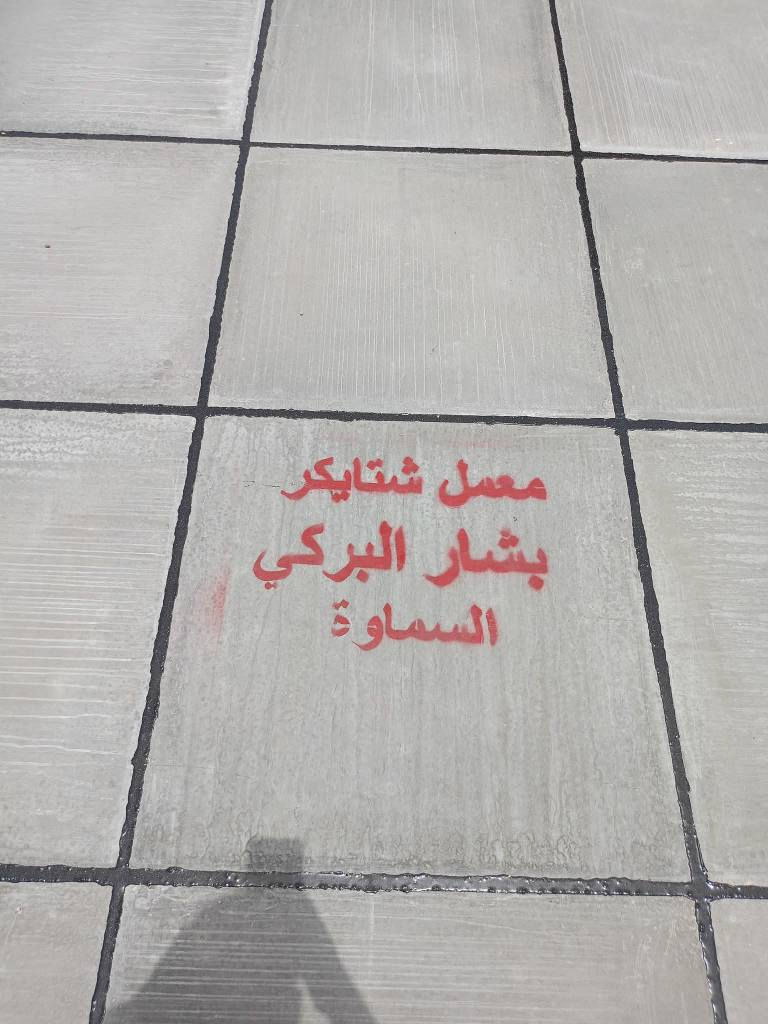 معمل شتايكر
بشار البركي
السماوة